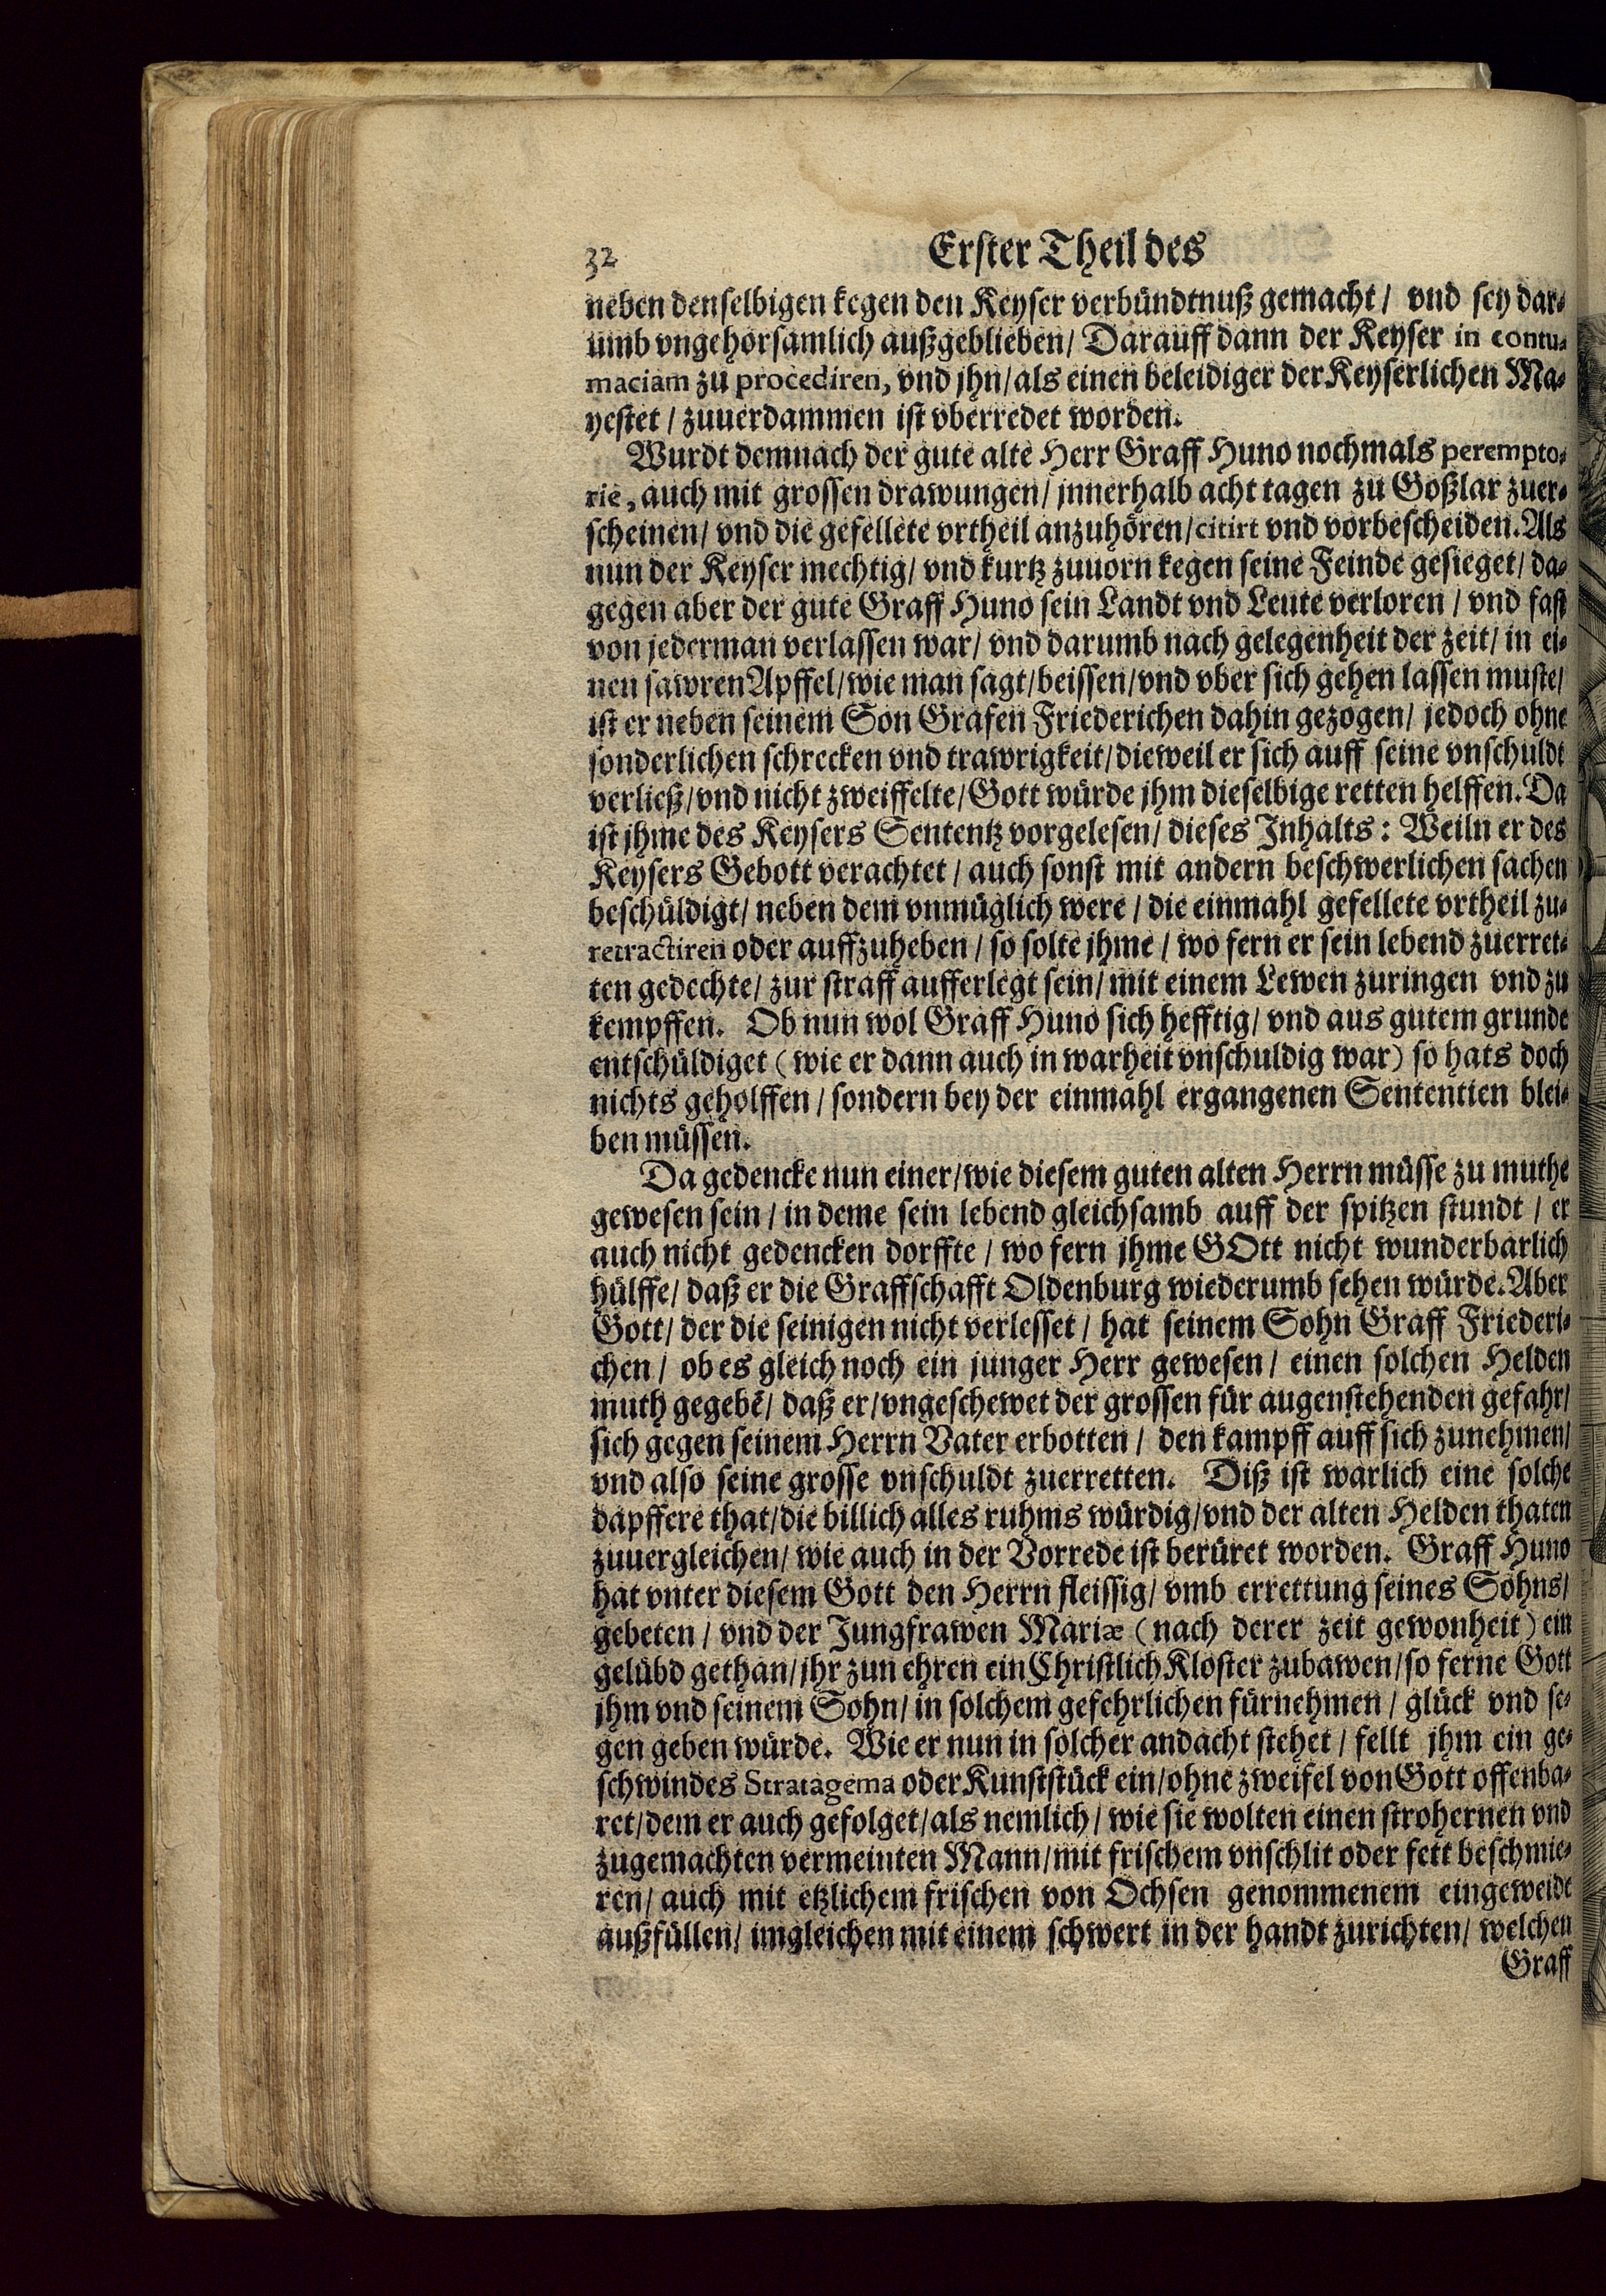 32 Erster Theil des
neben denselbigen kegen den Keyser verbündtnuß gemacht / vnd sey dar-
umb vngehorsamlich außgeblieben / Darauff dann der Keyser in contu-
maciam zu procediren, vnd jhn / als einen beleidiger der Keyserlichen Ma-
yestet / zuuerdammen ist vberredet worden.
Wurdt demnach der gute alte Herr Graff Huno nochmals perempto-
rie, auch mit grossen drawungen / jnnerhalb acht tagen zu Goßlar zuer-
scheinen / vnd die gefellete vrtheil anzuhören / citirt vnd vorbescheiden. Als
nun der Keyser mechtig / vnd kurtz zuuorn kegen seine Feinde gesieget / da-
gegen aber der gute Graff Huno sein Landt vnd Leute verloren / vnd fast
von jederman verlassen war / vnd darumb nach gelegenheit der zeit / in ei-
nen sawren Apffel / wie man sagt / beissen / vnd vber sich gehen lassen muste /
ist er neben seinem Son Grafen Friederichen dahin gezogen / jedoch ohne
sonderlichen schrecken vnd trawrigkeit / dieweil er sich auff seine vnschuldt
verließ / vnd nicht zweiffelte / Gott würde jhm dieselbige retten helffen. Da
ist jhme des Keysers Sententz vorgelesen / dieses Inhalts: Weiln er des
Keysers Gebott verachtet / auch sonst mit andern beschwerlichen sachen
beschüldigt / neben dem vnmüglich were / die einmahl gefellete vrtheil zu-
retractiren oder auffzuheben / so solte jhme / wo fern er sein lebend zuerret-
ten gedechte / zur straff aufferlegt sein / mit einem Lewen zuringen vnd zu
kempffen. Ob nun wol Graff Huno sich hefftig / vnd aus gutem grunde
entschüldiget (wie er dann auch in warheit vnschuldig war) so hats doch
nichts geholffen / sondern bey der einmahl ergangenen Sententien blei-
ben müssen.
Da gedencke nun einer / wie diesem guten alten Herrn müsse zu muthe
gewesen sein / in deme sein lebend gleichsamb auff der spitzen stundt / er
auch nicht gedencken dorffte / wo fern jhme GOtt nicht wunderbarlich
hülffe / daß er die Graffschafft Oldenburg wiederumb sehen würde. Aber
Gott / der die seinigen nicht verlesset / hat seinem Sohn Graff Friederi-
chen / ob es gleich noch ein junger Herr gewesen / einen solchen Helden
muth gegebē / daß er / vngeschewet der grossen für augenstehenden gefahr /
sich gegen seinem Herrn Vater erbotten / den kampff auff sich zunehmen /
vnd also seine grosse vnschuldt zuerretten. Diß ist warlich eine solche
dapffere that / die billich alles ruhms würdig / vnd der alten Helden thaten
zuuergleichen / wie auch in der Vorrede ist berüret worden. Graff Huno
hat vnter diesem Gott den Herrn fleissig / vmb errettung seines Sohns /
gebeten / vnd der Jungfrawen Mariæ (nach derer zeit gewonheit) ein
gelübd gethan / jhr zun ehren ein Christlich Kloster zubawen / so ferne Gott
jhm vnd seinem Sohn / in solchem gefehrlichen fürnehmen / glück vnd se-
gen geben würde. Wie er nun in solcher andacht stehet / fellt jhm ein ge-
schwindes Stratagema oder Kunststück ein / ohne zweifel von Gott offenba-
ret / dem er auch gefolget / als nemlich / wie sie wolten einen strohernen vnd
zugemachten vermeinten Mann / mit frischem vnschlit oder fett beschmie-
ren / auch mit etzlichem frischen von Ochsen genommenem eingeweidt
außfüllen / imgleichen mit einem schwert in der handt zurichten / welchen
Graff